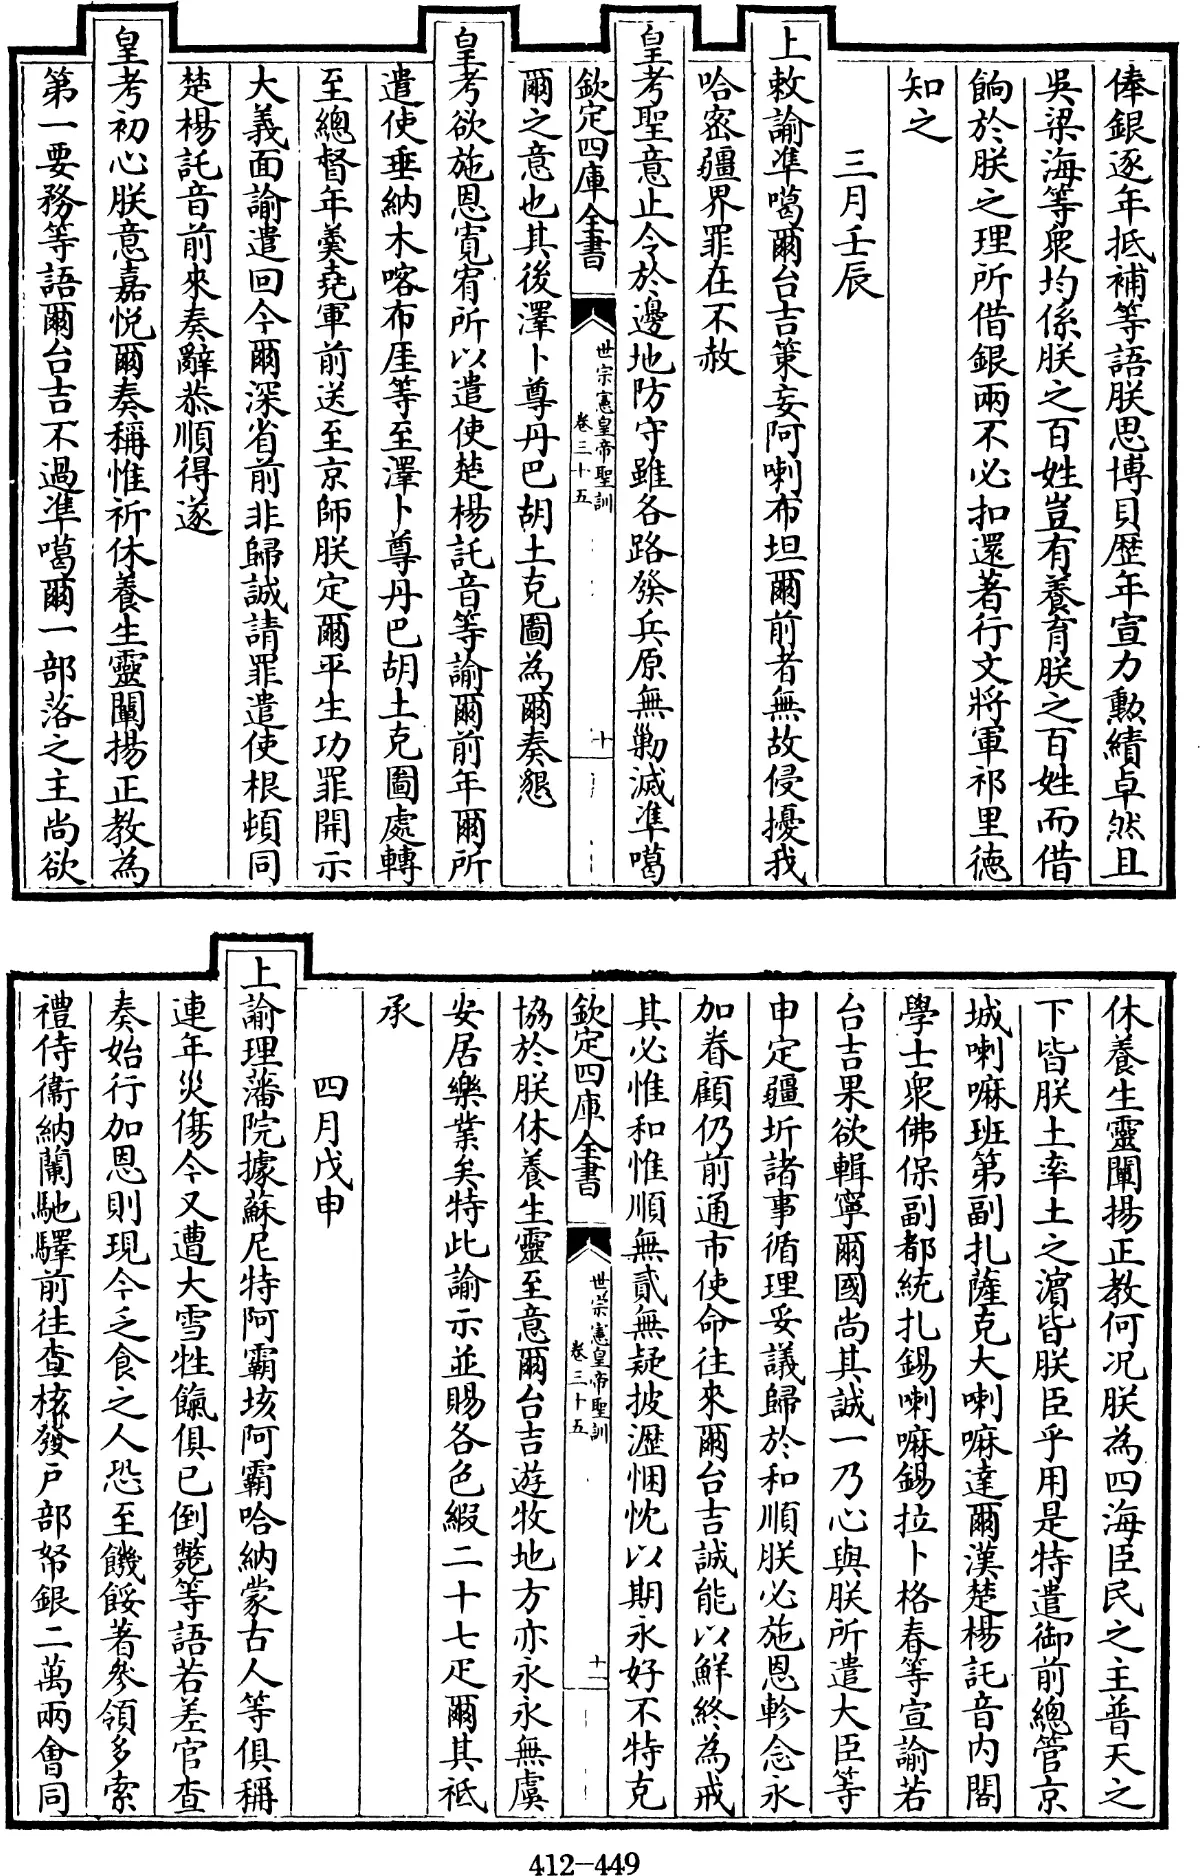 俸銀逐年抵補等語朕思博貝歴年宣力勲績卓然且
吳梁海等衆均係朕之百姓豈有養育朕之百姓而借
餉於朕之理所借銀兩不必扣還著行文將軍祁里德
知之
三月壬辰
上敕諭準噶爾台吉策妄阿喇布坦爾前者無故侵擾我
哈密疆界罪在不赦
皇考聖意止令於邊地防守雖各路發兵原無勦滅準噶
欽定四庫全書
世宗憲皇帝聖訓
卷三十五
十
爾之意也其後澤卜尊丹巴胡土克圖為爾奏懇
皇考欲施恩寛宥所以遣使楚楊託音等諭爾前年爾所
遣使垂納木喀布厓等至澤卜尊丹巴胡土克圖處轉
至總督年羹堯軍前送至京師朕定爾平生功罪開示
大義面諭遣回今爾深省前非歸誠請罪遣使根頓同
楚楊託音前來奏辭恭順得遂
皇考初心朕意嘉悦爾奏稱惟祈休養生靈闡揚正教為
第一要務等語爾台吉不過準噶爾一部落之主尚欲
休養生靈闡揚正教何况朕為四海臣民之主普天之
下皆朕土率土之濵皆朕臣乎用是特遣御前總管京
城喇嘛班第副扎薩克大喇嘛達爾漢楚楊託音内閣
學士衆佛保副都統扎錫喇嘛錫拉卜格春等宣諭若
台吉果欲輯寧爾國尚其誠一乃心與朕所遣大臣等
申定疆圻諸事循理妥議歸於和順朕必施恩軫念永
加眷顧仍前通市使命往來爾台吉誠能以鮮終為戒
其必惟和惟順無貳無疑披瀝悃忱以期永好不特克
欽定四庫全書
世宗憲皇帝聖訓
卷三十五
十一
協於朕休養生靈至意爾台吉遊牧地方亦永永無虞
安居樂業矣特此諭示並賜各色緞二十七疋爾其祗
承
四月戊申
上諭理藩院據蘇尼特阿霸垓阿霸哈納蒙古人等俱稱
連年災傷今又遭大雪牲餼俱已倒斃等語若差官查
奏始行加恩則現今乏食之人恐至饑餒著參領多索
禮侍衞納蘭馳驛前往查核發戸部帑銀二萬兩會同
412-449